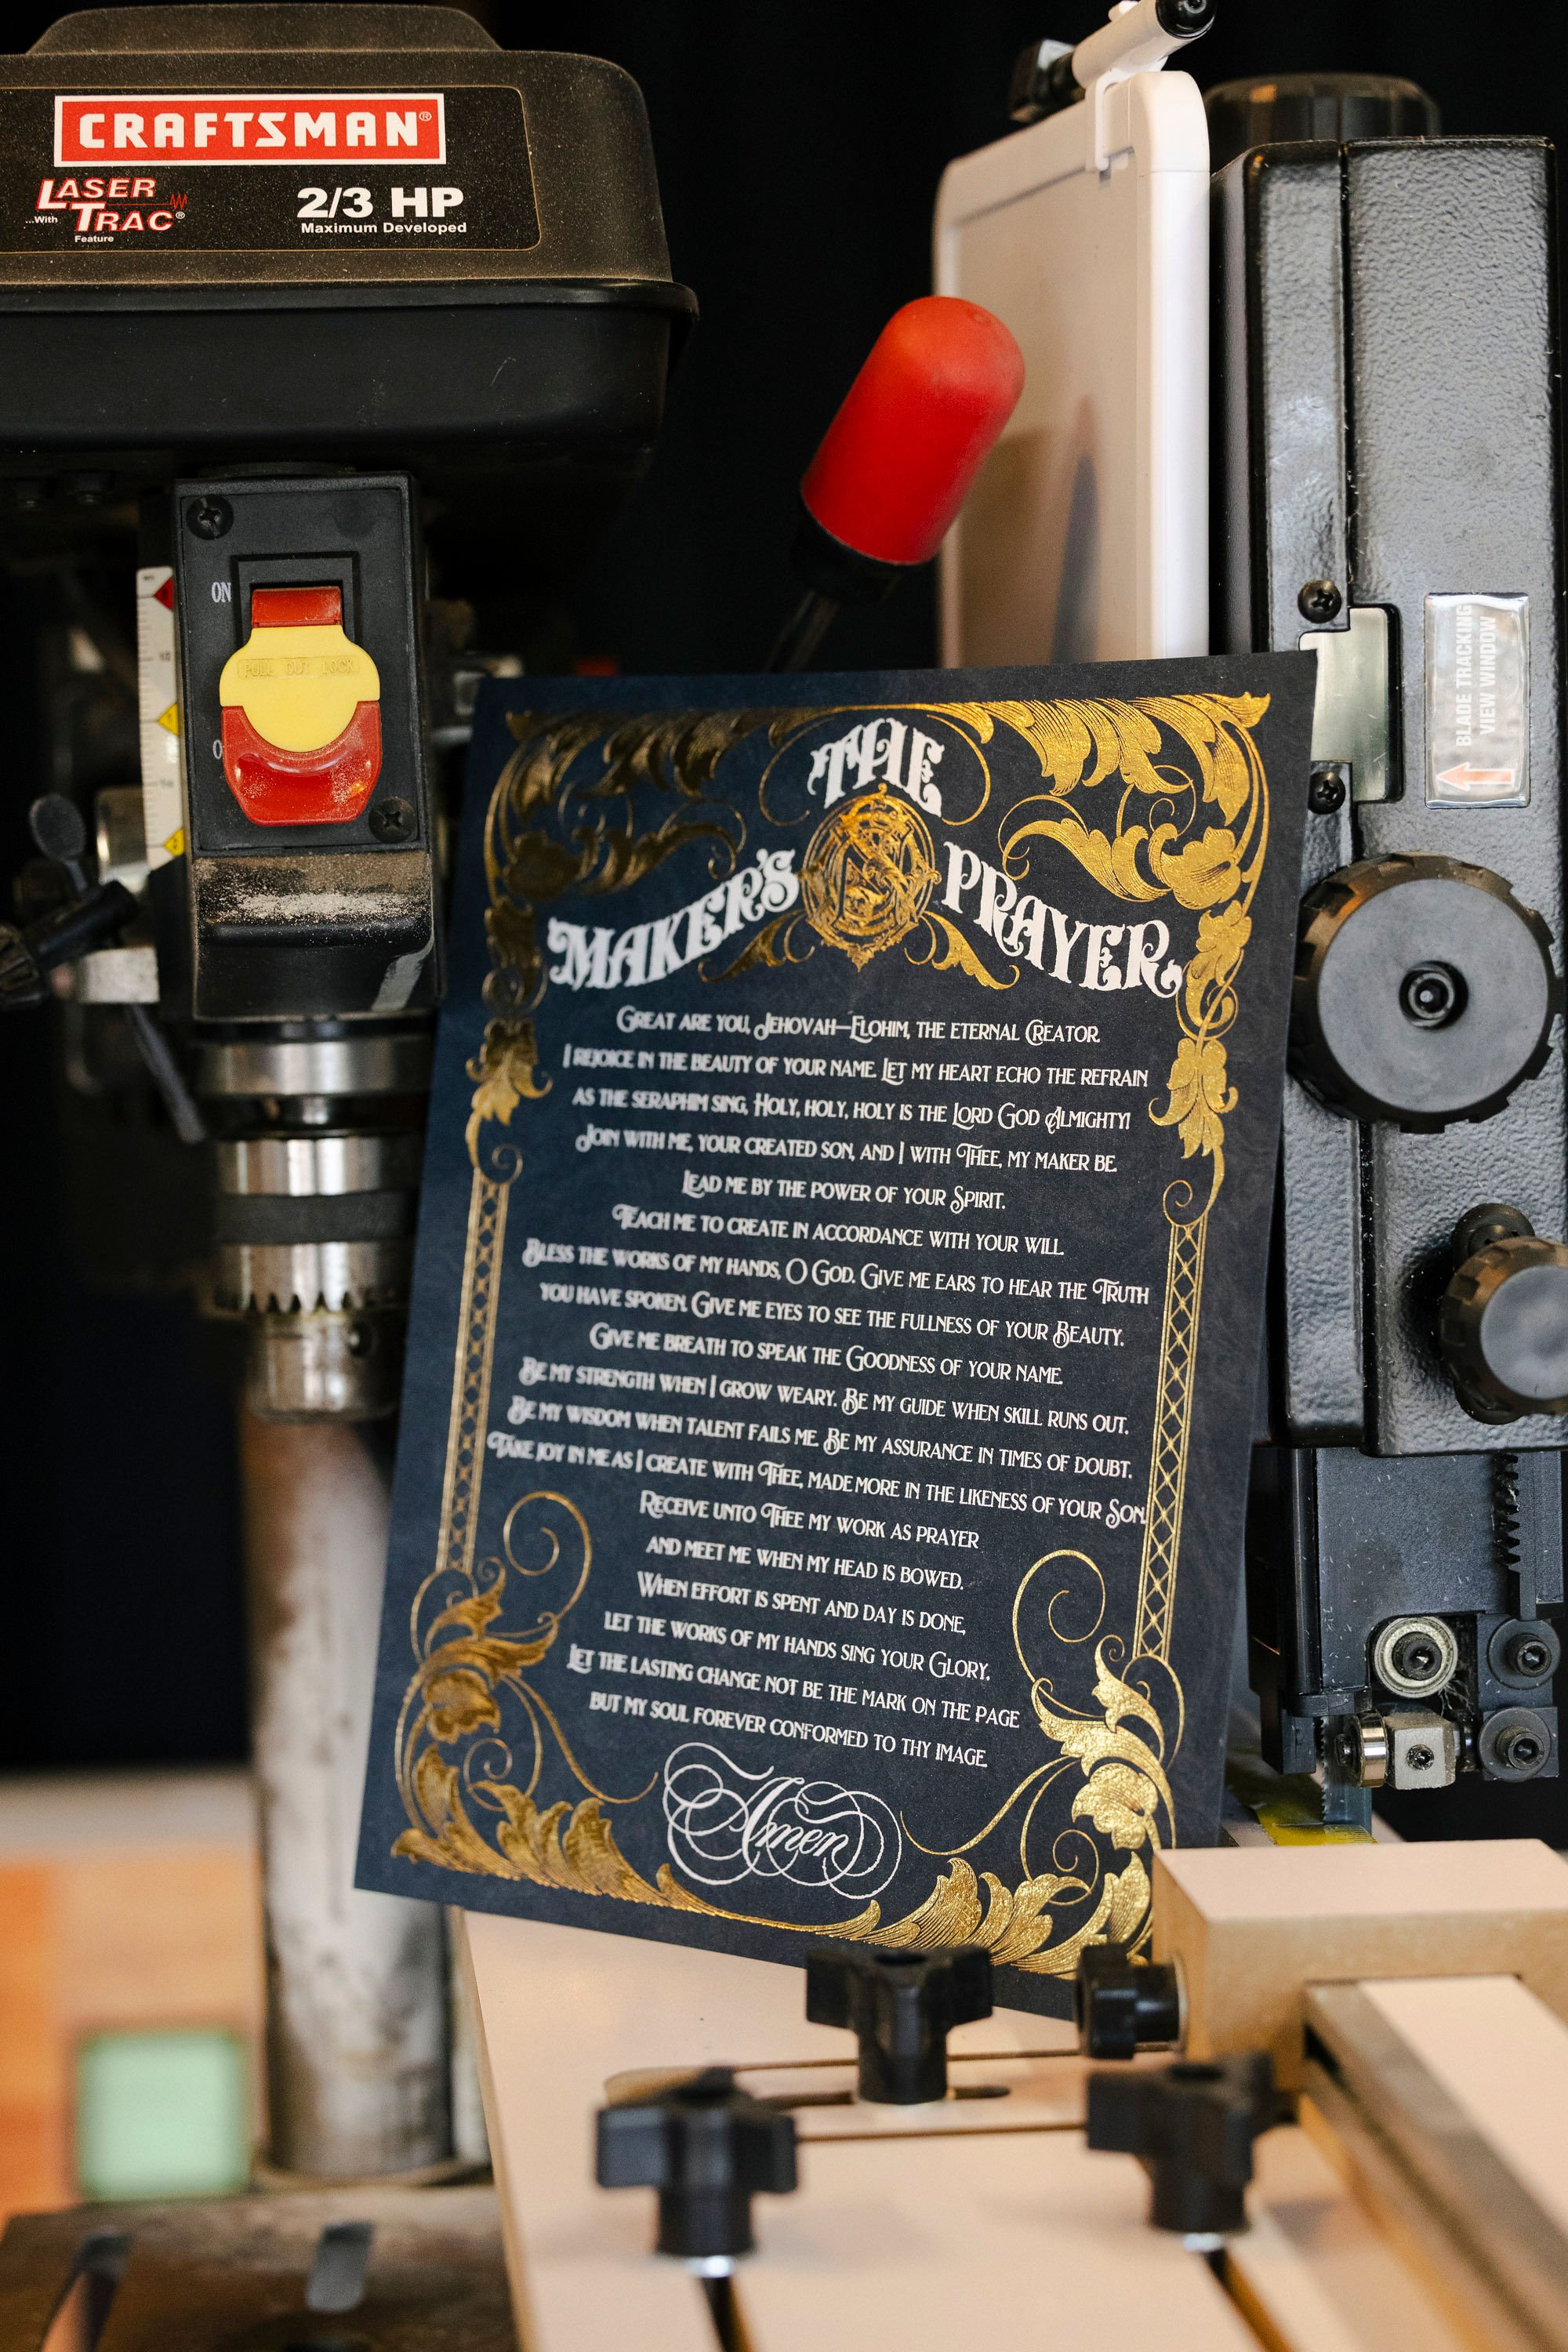 CRAFTSMAN®
LASER
...With TRAC®
Feature
2/3 HP
Maximum Developed
ON
PULL OUT LOCK
O
BLADE TRACKING
VIEW WINDOW
THE
MAKER'S PRAYER
GREAT ARE YOU, JEHOVAH—ELOHIM, THE ETERNAL CREATOR.
I REJOICE IN THE BEAUTY OF YOUR NAME. LET MY HEART ECHO THE REFRAIN
AS THE SERAPHIM SING, HOLY, HOLY, HOLY IS THE LORD GOD ALMIGHTY!
JOIN WITH ME, YOUR CREATED SON, AND I WITH THEE, MY MAKER BE.
LEAD ME BY THE POWER OF YOUR SPIRIT.
TEACH ME TO CREATE IN ACCORDANCE WITH YOUR WILL.
BLESS THE WORKS OF MY HANDS, O GOD. GIVE ME EARS TO HEAR THE TRUTH
YOU HAVE SPOKEN. GIVE ME EYES TO SEE THE FULLNESS OF YOUR BEAUTY.
GIVE ME BREATH TO SPEAK THE GOODNESS OF YOUR NAME.
BE MY STRENGTH WHEN I GROW WEARY. BE MY GUIDE WHEN SKILL RUNS OUT.
BE MY WISDOM WHEN TALENT FAILS ME. BE MY ASSURANCE IN TIMES OF DOUBT.
TAKE JOY IN ME AS I CREATE WITH THEE, MADE MORE IN THE LIKENESS OF YOUR SON.
RECEIVE UNTO THEE MY WORK AS PRAYER
AND MEET ME WHEN MY HEAD IS BOWED.
WHEN EFFORT IS SPENT AND DAY IS DONE,
LET THE WORKS OF MY HANDS SING YOUR GLORY.
LET THE LASTING CHANGE NOT BE THE MARK ON THE PAGE
BUT MY SOUL FOREVER CONFORMED TO THY IMAGE.
Amen